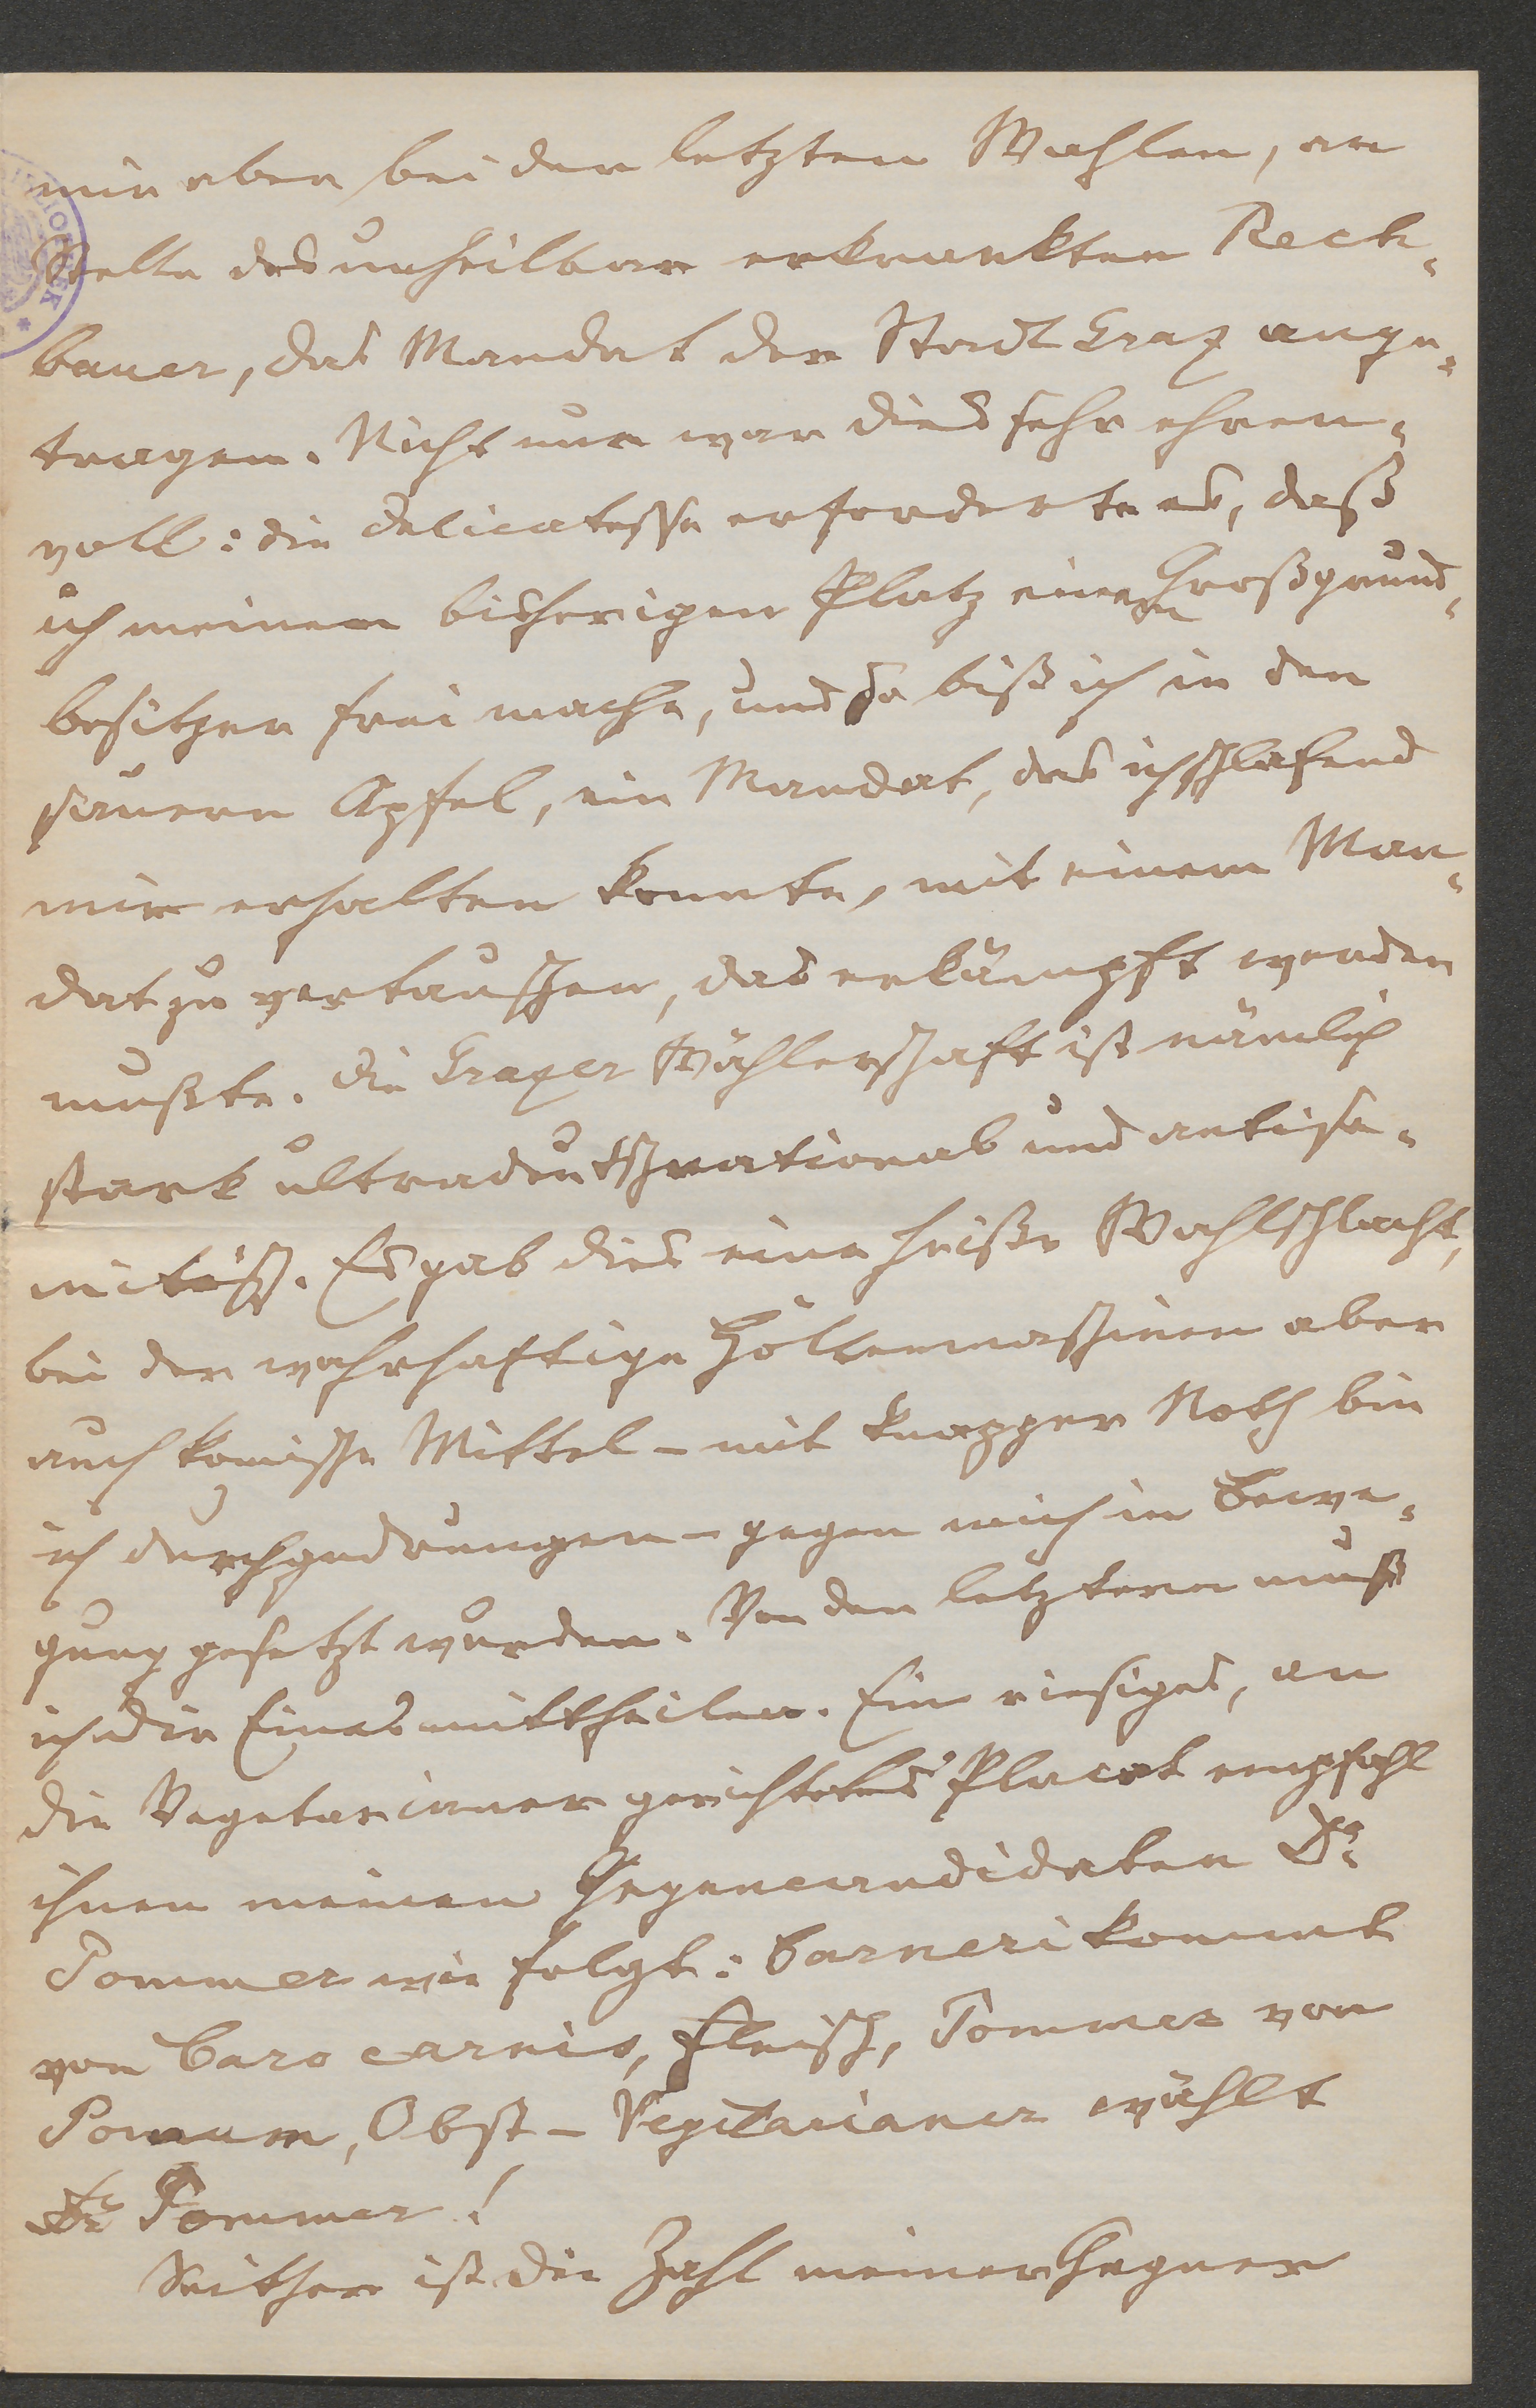 mir aber bei den letzten Wahlen, an
Stelle des unheilbar erkrankten Rech-
bauer, das Mandat der Stadt Graz ange-
tragen. Nicht nur war dies sehr ehren-
voll: die Delicatesse erforderte es, daß
ich meinen bisherigen Platz einem Großgrund-
besitzer frei mache, und so biß ich in den
sauern Apfel, ein Mandat, das ich schlafend
mir erhalten konnte, mit einem Man-
dat zu vertauschen, das erkämpft werden
mußte. Die Grazer Wählerschaft ist nämlich
stark ultradeutschnational und antise-
mitisch. Es gab dies eine heiße Wahlschlacht,
bei der wahrhaftige Höllenmaschinen aber
auch komische Mittel – mit knapper Noth bin
ich durchgedrungen – gegen mich in Bewe-
gung gesetzt wurden. Von den letztern muß
ich dir Eines mittheilen. Ein riesiges, an
die Vegetarianer gerichtetes Placat empfahl
ihnen meinen Gegencandidaten Dr.
Pommer wie folgt: Carneri kommt
von Caro carnis, Fleisch, Pommer von
Pomum, Obst – Vegetarianer wählt
Dr Pommer!
Seither ist die Zahl meiner Gegner